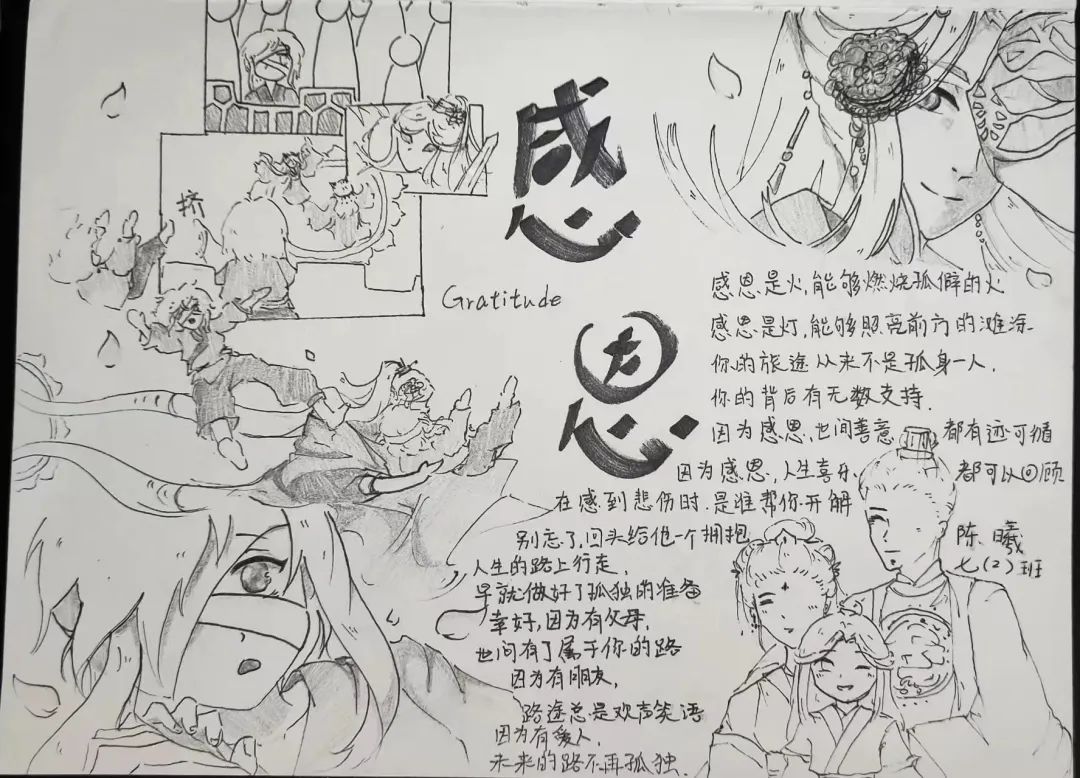 感
恩
Gratitude
挤
感恩是火,能够燃烧孤僻的火
感恩是灯,能够照亮前方的滩涂.
你的旅途从来不是孤身一人.
你的背后有无数支持.
因为感恩,世间善意 都有迹可循
因为感恩,人生喜乐, 都可以回顾
在感到悲伤时.是谁帮你开解
别忘了,回头给他一个拥抱
人生的路上行走,
早就做好了孤独的准备
幸好,因为有父母,
世间有了属于你的路
因为有朋友,
路途总是欢声笑语
因为有爱人,
未来的路不再孤独.
陈曦
七(2)班